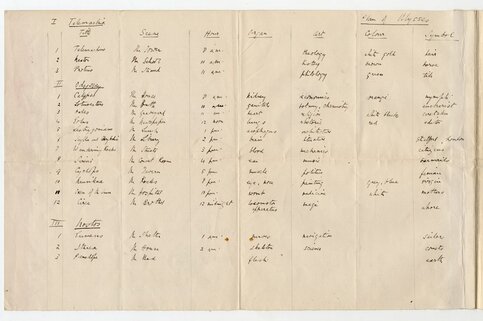 I Telemachia Plan of Ulysses
Title Scene Hour Organ Art Colour Symbol
1 Telemachus The Tower 8 am theology white gold heir
2 Nestor The School 10 am history brown horse
3 Proteus The Strand 11 am philology green tide
II Odyssey
1 Calypso The House 8 am kidney economics orange nymph
2 Lotuseaters The Bath 10 am genitals botany, chemistry eucharist
3 Hades The Graveyard 11 am heart religion white black caretaker
4 Eolus The Newspaper 12 noon lungs rhetoric red editor
5 Lestrygonians The Lunch 1 pm esophagus architecture constables
6 Scylla and Charybdis The Library 2 pm brain literature Stratford, London
7 Wandering Rocks The Streets 3 pm blood mechanics citizens
8 Sirens The Concert Room 4 pm ear music barmaids
9 Cyclops The Tavern 5 pm muscle politics fenian
10 Nausikaa The Rocks 8 pm eye, nose painting grey, blue virgin
11 Oxen of the Sun The Hospital 10 pm womb medicine white mothers
12 Circe The Brothel 12 midnight locomotor apparatus magic whore
III Nostos
1 Eumaeus The Shelter 1 am nerves navigation sailors
2 Ithaca The House 2 am skeleton science comets
3 Penelope The Bed flesh earth